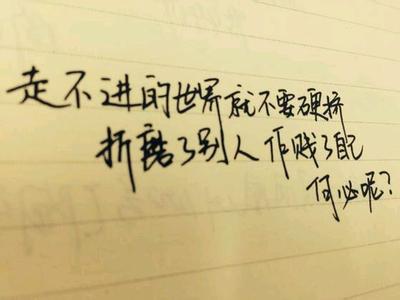 走不进的世界就不要硬挤
折磨了别人作贱了自己
何必呢?